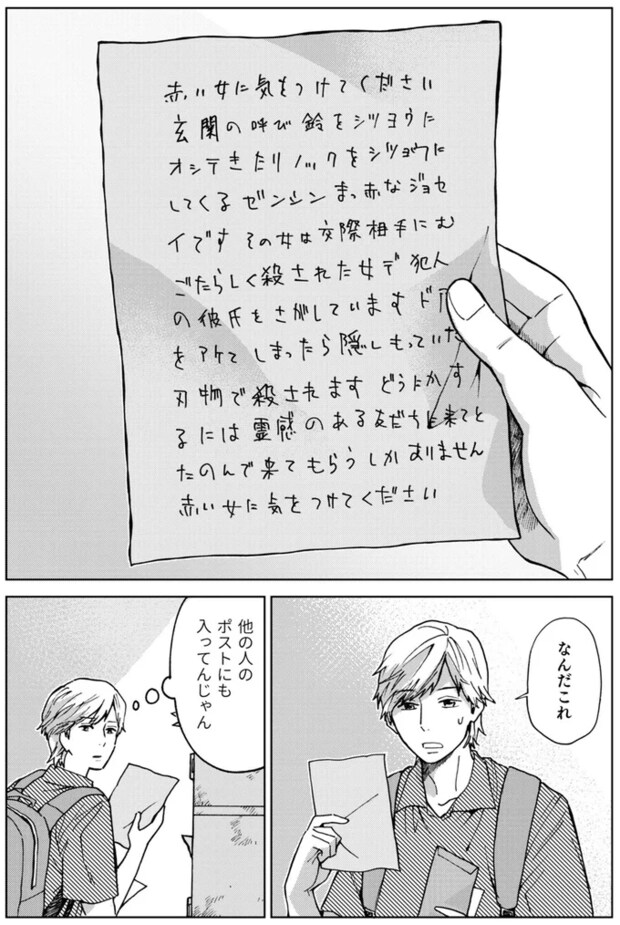 赤い女に気をつけてください
玄関の呼び鈴をシツヨウに
オシテきたりノックをシツヨウに
してくるゼンシンまっ赤なジョセ
イです その女は交際相手にむ
ごたらしく殺された女デ 犯人
の彼氏をさがしています ドア
をアケてしまったら隠しもっていた
刃物で殺されます どうにかす
るには霊感のある友だちに来てと
たのんで来てもらうしかありません
赤い女に気をつけてください
なんだこれ
他の人の
ポストにも
入ってんじゃん